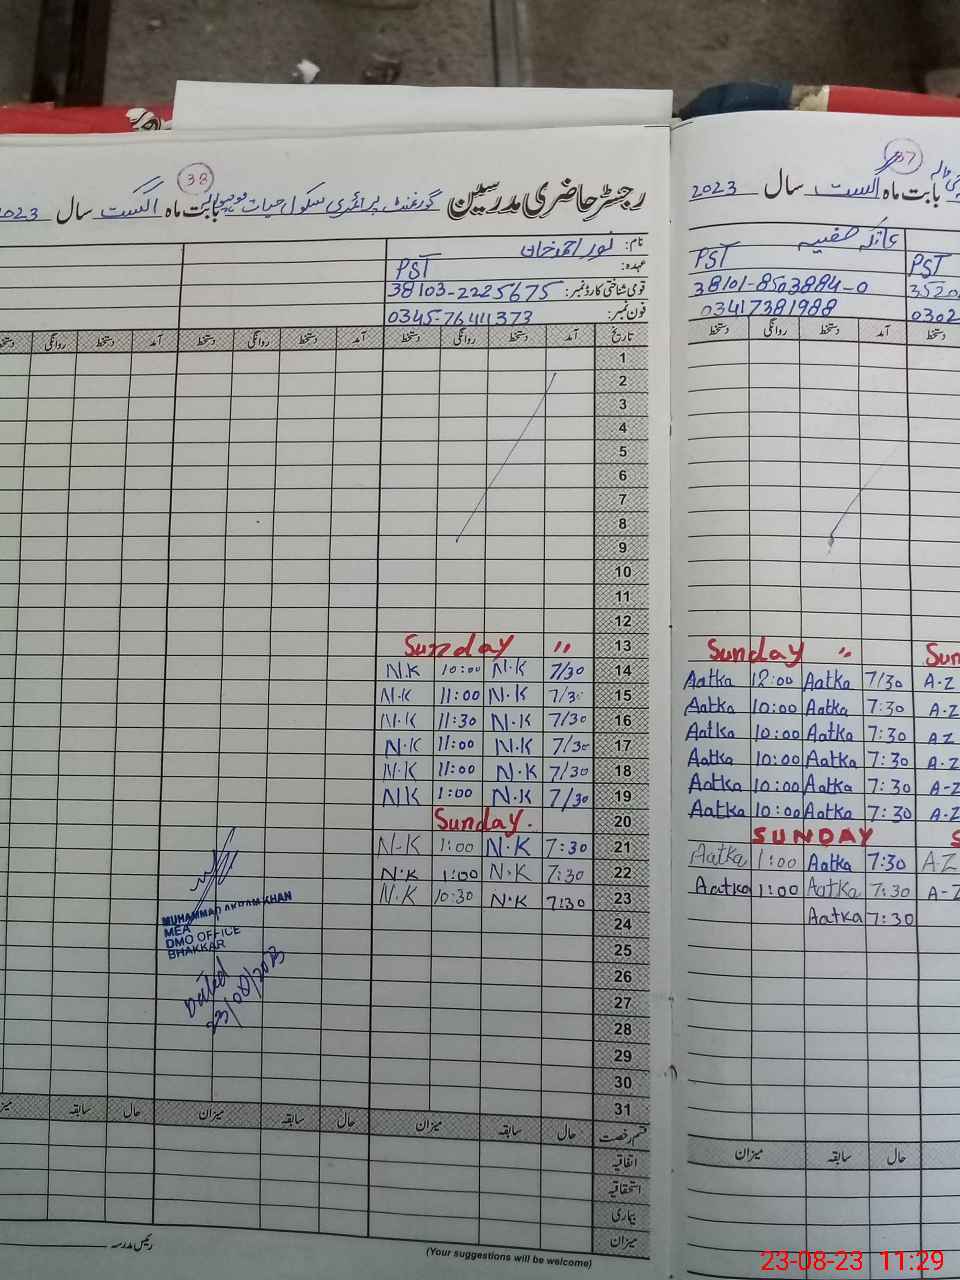 38
رجسٹر حاضری مدرسین گورنمنٹ پرائمری سکول حیات بابت ماہ اگست سال 2023
نام: نور احمد خان
عہدہ: PST
قومی شناختی کارڈ نمبر: 38103-2225675
فون نمبر: 0345-7641373
تاریخ آمد دستخط روانگی دستخط آمد دستخط روانگی دستخط
1
2
3
4
5
6
7
8
9
10
11
12
13 Sunday "
14 7/30 N.K 10:00 N.K
15 7/30 N.K 11:00 N.K
16 7/30 N.K 11:30 N.K
17 7/30 N.K 11:00 N.K
18 7/30 N.K 11:00 N.K
19 7/30 N.K 1:00 NK
20 Sunday.
21 7:30 N.K 1:00 N-K
22 7:30 N.K 1:00 N.K
23 7:30 N.K 10:30 N.K
24
25
26
27
28
29
30
31
MUHAMMAD AKRAM KHAN
MEA
DMO OFFICE
BHAKKAR
Dated
23/08/2023
قسم رخصت حال سابقہ میزان حال سابقہ میزان حال سابقہ
اتفاقیہ
استحقاقیہ
بیماری
میزان
رئیس مدرسہ
(Your suggestions will be welcome)
37
بابت ماہ اگست سال 2023
عاتکہ صفیہ
PST PST
38101-8503884-0 3520
03417381988 0302
آمد دستخط روانگی دستخط
دستخط
Sunday " Sun
7/30 Aatka 12:00 Aatka A-Z
7:30 Aatka 10:00 Aatka A-Z
7:30 Aatka 10:00 Aatka AZ
7:30 Aatka 10:00 Aatka A-Z
7:30 Aatka 10:00 Aatka A-Z
7:30 Aatka 10:00 Aatka A-Z
SUNDAY S
7:30 Aatka 1:00 Aatka A-Z
7:30 Aatka 1:00 Aatka A-Z
7:30 Aatka
حال سابقہ میزان
23-08-23 11:29